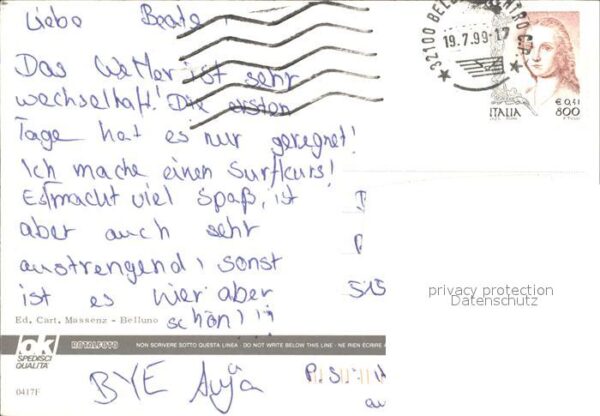 Liebe Beate,
Das Wetter ist sehr
wechselhaft! Die ersten
Tage hat es nur geregnet!
Ich mache einen Surfkurs!
Es macht viel Spaß, ist
aber auch sehr
anstrengend, sonst
ist es hier aber
schön!!!
BYE Anja
P.S:
32100 BELLUNO CENTRO
19.7.99-17
€ 0,41
ITALIA 800
515
privacy protection
Datenschutz
Ed. Cart. Massenz - Belluno
ok
SPEDISCI
QUALITA'
ROTALFOTO
NON SCRIVERE SOTTO QUESTA LINEA - DO NOT WRITE BELOW THIS LINE - NE RIEN ÉCRIRE
0417F